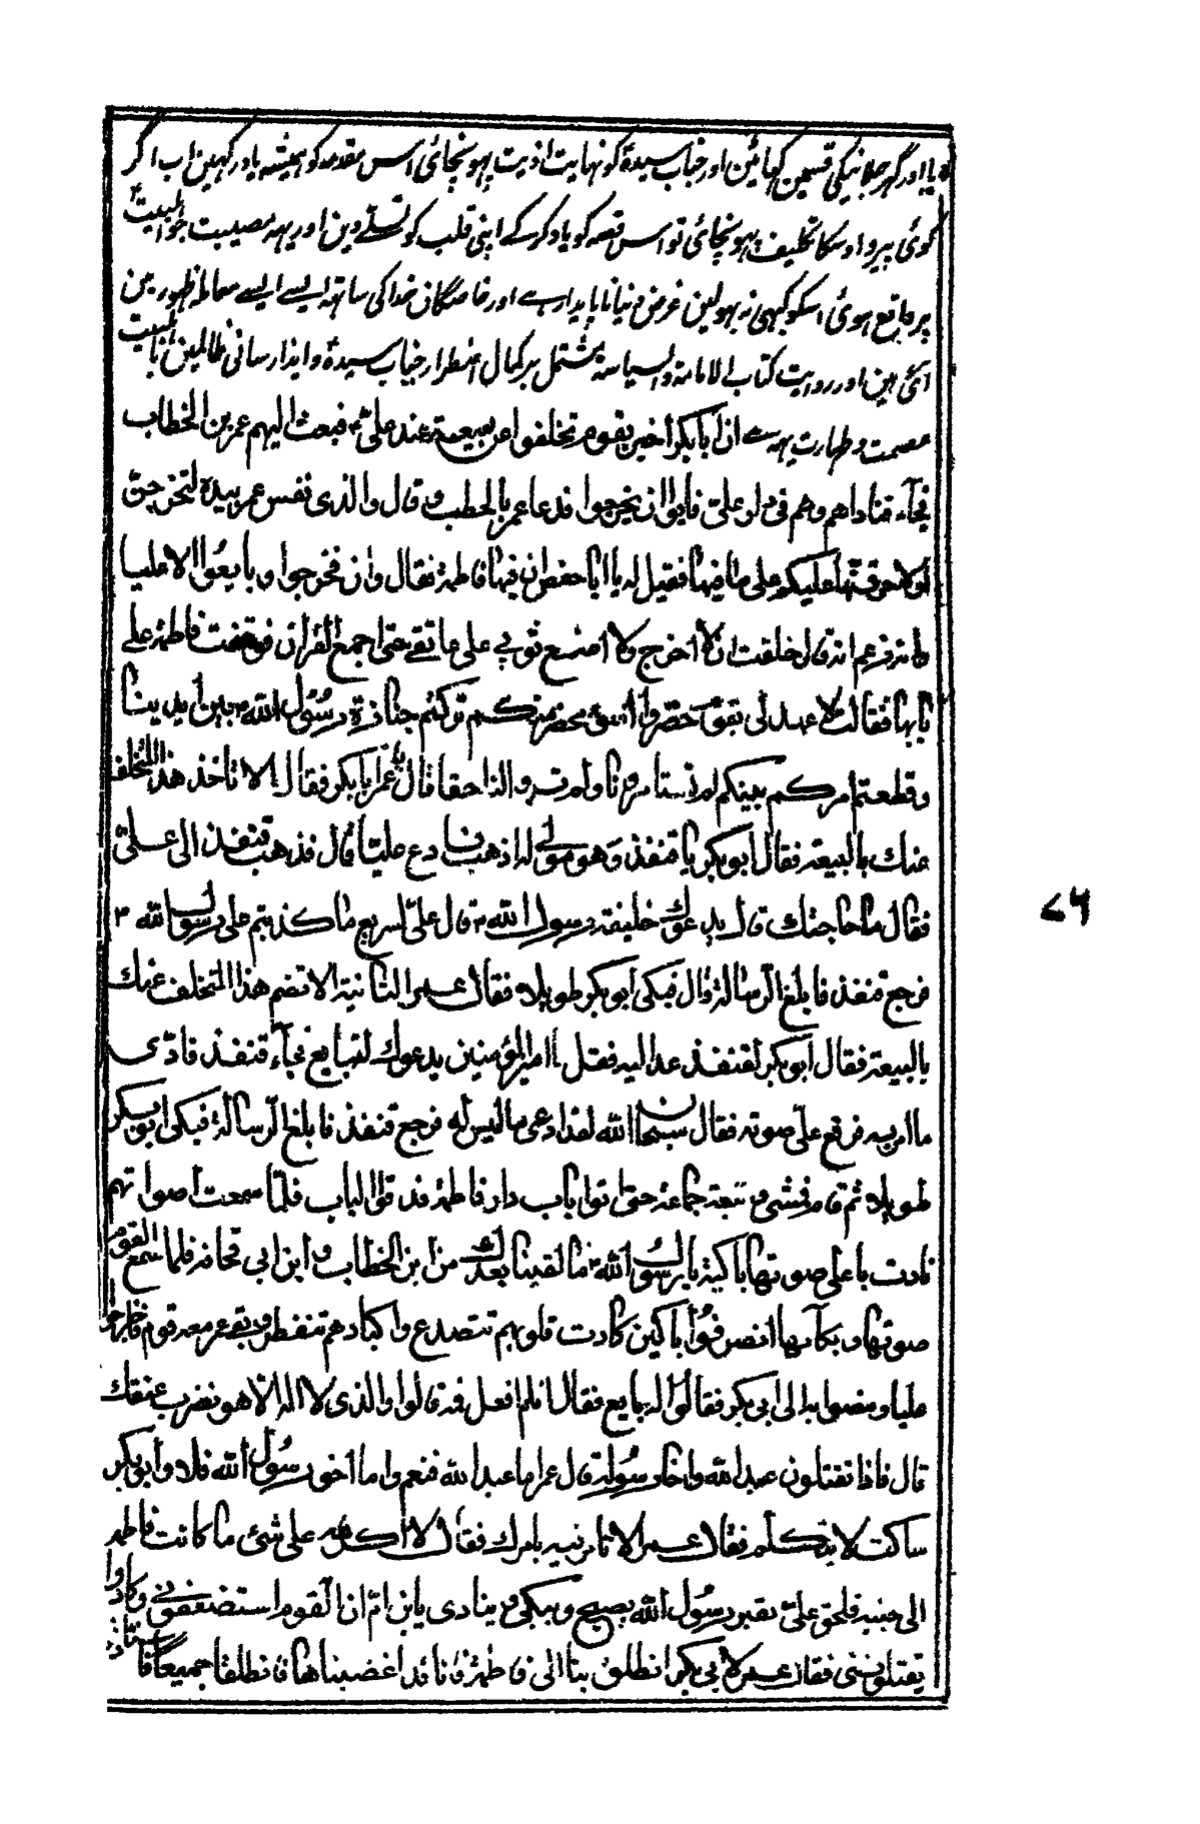 دیا اور گہر جلانیکی قسمین کہائین اور جناب سیدۃ کو نہایت اذیت پہونچائی اس مقدمہ کو ہمیشہ یاد رکہین اب اگر
کوئی پیرو اوسکا تکلیف پہونچائی تو اس قصہ کو یاد کرکے اپنی قلب کو تسلے دین اور یہہ مصیبت جو اہلبیتؑ
پر واقع ہوئی اسکو کبہی نہ بہولین غرض دنیا ناپایدار ہے اور خاصگان خدا کی ساتہہ ایسے ایسے معاملہ ظہور مین
آئی ہین اور روایت کتاب الامامۃ والسیاسۃ مشتمل بر کمال اضطرار جناب سیدۃ و ایذا رسانی ظالمین با اہلبیت
عصمت و طہارت یہہ ہے ان ابابکر اخبر بقوم تخلفوا عن بیعتہ عند علیؑ فبعث الیہم عمر بن الخطاب
فجآء فناداهم وهم فی دار علیّ فابوا ان یخرجوا فدعا عمر بالحطب و قال والذی نفس عمر بیدہ لتخرجنّ
او لاحرقنّها علیکم علی ما فیها فقیل له یا ابا حفص ان فیها فاطمة فقال وان فخرجوا و بایعُوا الا علیا
فانه زعم انه قال حلفت ان لا اخرج ولا اضع ثوبی علی عاتقے حتی اجمع القرآن فوقفت فاطمة علے
بابها فقالت لا عهد لی بقوم حضروا اسوء محضر منکم ترکتم جنازة رسُول الله ؐ بین ایدینا
و قطعتم امرکم بینکم لم تستامرونا و لم تروا لنا حقا قال عمر لابابکر فقال الا تاخذ هذا المتخلف
عنك بالبیعة فقال ابوبکر یا قنفذ وهو مولی له اذهب فادع علیّا قال فذهب قنفذ الی علیّ
فقال ما حاجتك قال یدعوك خلیفة رسول الله ؐ قال علیّ لسریع ما کذبتم علی رسول الله ؐ
فرجع قنفذ فابلغ الرسالة قال فبکی ابوبکر طویلا فقال عمر الثانیة الا تضم هذا المتخلف عنك
بالبیعة فقال ابوبکر لقنفذ عد الیه فقل امیر المؤمنین یدعوك لتبایع فجآء قنفذ فادّی
ما امر به فرفع علیّ صوته فقال سبحان الله لقد ادعی ما لیس له فرجع قنفذ فابلغ الرّسالة فبکی ابوبکر
طویلا ثم قام فمشی معه جماعة حتی اتوا باب دار فاطمة فدقوا الباب فلمّا سمعت اصواتهم
نادت باعلی صوتها باکیة یا رسُول الله ؐ ما لقینا بعدك من ابن الخطاب و ابن ابی قحافة فلما سمع القوم
صوتها و بکآءها انصرفوُا باکین کادت قلوبهم تتصدع و اکبادهم تنفطر و بقی عمر معه قوم فاخرجوا
علیا و مضوا به الی ابی بکر فقالوُا له بایع فقال ان لم افعل فمه قالوا والذی لا اله الا هو نضرب عنقك
قال فاذا تقتلون عبد الله واخا رسوله قال عمر اما عبد الله فنعم و اما اخو رسُول الله فلا و ابوبکر
ساکت لا یتکلم فقال عمر الا تامر فیه بامرك فقال لا اکرهه علی شئ ما کانت فاطمة
الی جنبه فلحق علیّ بقبر رسُول الله یصیح و یبکی و ینادی یا بن امّ ان القوم استضعفونی و کادوا
یقتلوننی فقال عمر لابی بکر انطلق بنا الی فاطمة فانا قد اغضبناها فانطلقا جمیعا فاستاذنا
۷۶